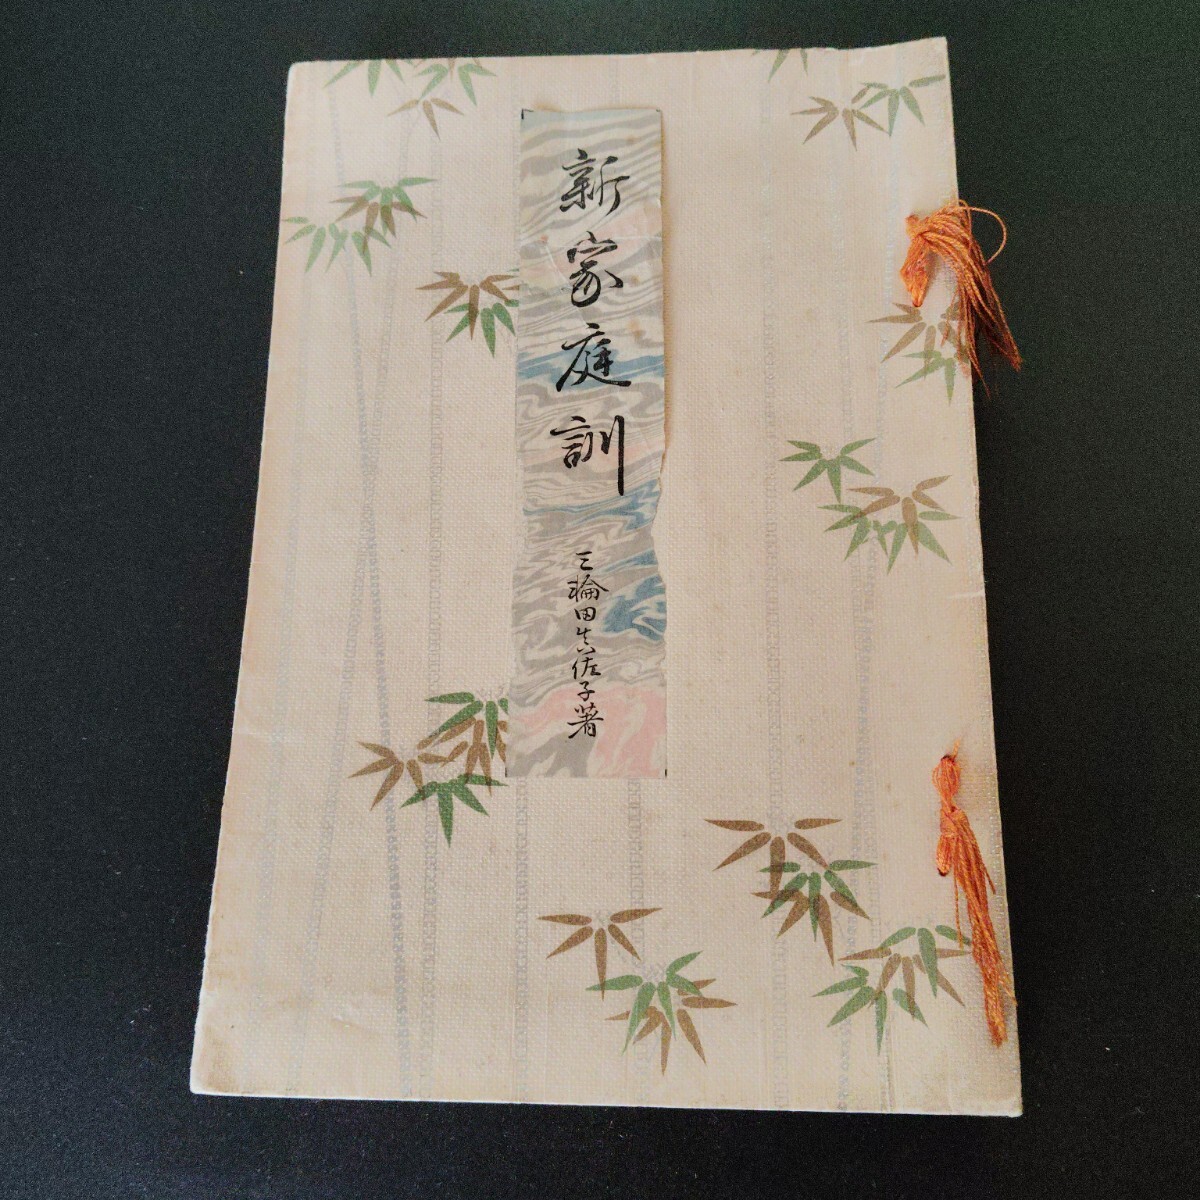 新家庭訓
三輪田真佐子著